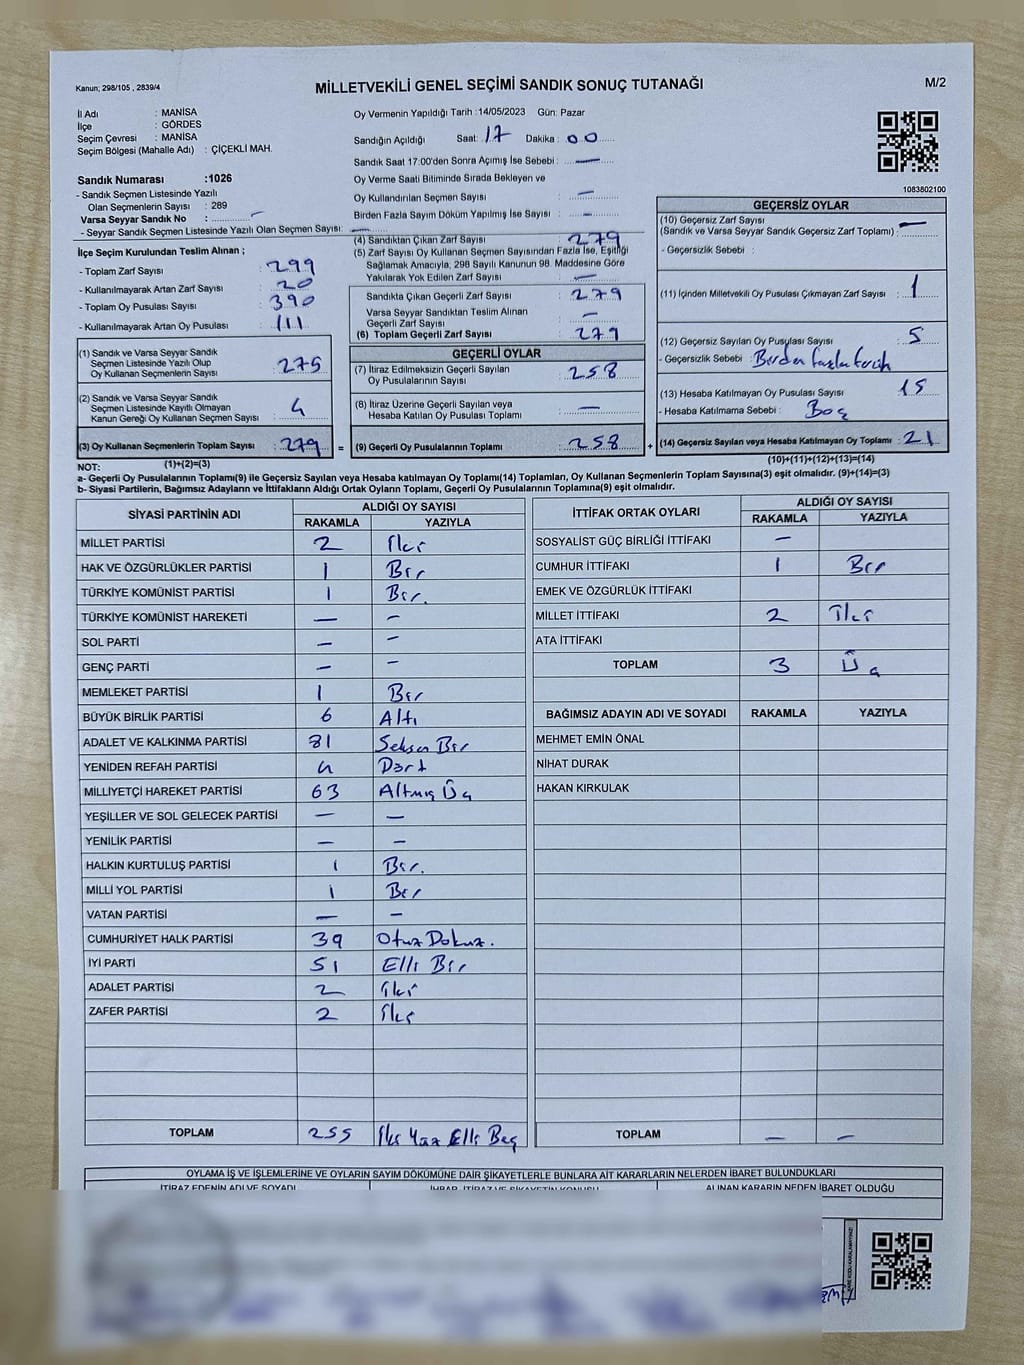 Kanun; 298/105 , 2839/4
MİLLETVEKİLİ GENEL SEÇİMİ SANDIK SONUÇ TUTANAĞI
M/2
İl Adı : MANİSA
İlçe : GÖRDES
Seçim Çevresi : MANİSA
Seçim Bölgesi (Mahalle Adı) : ÇİÇEKLİ MAH.
Sandık Numarası :1026
- Sandık Seçmen Listesinde Yazılı
Olan Seçmenlerin Sayısı : 289
Varsa Seyyar Sandık No : –
- Seyyar Sandık Seçmen Listesinde Yazılı Olan Seçmen Sayısı: —
Oy Vermenin Yapıldığı Tarih :14/05/2023 Gün: Pazar
Sandığın Açıldığı Saat: 17 Dakika : 00
Sandık Saat 17:00'den Sonra Açımış İse Sebebi : —
Oy Verme Saati Bitiminde Sırada Bekleyen ve
Oy Kullandırılan Seçmen Sayısı : —
Birden Fazla Sayım Döküm Yapılmış İse Sayısı : –
1083802100
İlçe Seçim Kurulundan Teslim Alınan ;
- Toplam Zarf Sayısı : 299
- Kullanılmayarak Artan Zarf Sayısı : 20
- Toplam Oy Pusulası Sayısı : 390
- Kullanılmayarak Artan Oy Pusulası : 111
(1) Sandık ve Varsa Seyyar Sandık
Seçmen Listesinde Yazılı Olup
Oy Kullanan Seçmenlerin Sayısı : 275
(2) Sandık ve Varsa Seyyar Sandık
Seçmen Listesinde Kayıtlı Olmayan
Kanun Gereği Oy Kullanan Seçmen Sayısı : 4
(3) Oy Kullanan Seçmenlerin Toplam Sayısı : 279
(1)+(2)=(3)
(4) Sandıktan Çıkan Zarf Sayısı : 279
(5) Zarf Sayısı Oy Kullanan Seçmen Sayısından Fazla İse, Eşitliği
Sağlamak Amacıyla, 298 Sayılı Kanunun 98. Maddesine Göre
Yakılarak Yok Edilen Zarf Sayısı : —
Sandıkta Çıkan Geçerli Zarf Sayısı : 279
Varsa Seyyar Sandıktan Teslim Alınan
Geçerli Zarf Sayısı : –
(6) Toplam Geçerli Zarf Sayısı : 279
GEÇERLİ OYLAR
(7) İtiraz Edilmeksizin Geçerli Sayılan
Oy Pusulalarının Sayısı : 258
(8) İtiraz Üzerine Geçerli Sayılan veya
Hesaba Katılan Oy Pusulası Toplamı : —
= (9) Geçerli Oy Pusulalarının Toplamı : 258 +
GEÇERSİZ OYLAR
(10) Geçersiz Zarf Sayısı
(Sandık ve Varsa Seyyar Sandık Geçersiz Zarf Toplamı) : —
- Geçersizlik Sebebi :
(11) İçinden Milletvekili Oy Pusulası Çıkmayan Zarf Sayısı : 1
(12) Geçersiz Sayılan Oy Pusulası Sayısı : 5
- Geçersizlik Sebebi : Birden fazla tercih
(13) Hesaba Katılmayan Oy Pusulası Sayısı : 15
- Hesaba Katılmama Sebebi : Boş
(14) Geçersiz Sayılan veya Hesaba Katılmayan Oy Toplamı : 21
(10)+(11)+(12)+(13)=(14)
NOT:
a- Geçerli Oy Pusulalarının Toplamı(9) ile Geçersiz Sayılan veya Hesaba katılmayan Oy Toplamı(14) Toplamları, Oy Kullanan Seçmenlerin Toplam Sayısına(3) eşit olmalıdır. (9)+(14)=(3)
b- Siyasi Partilerin, Bağımsız Adayların ve İttifakların Aldığı Ortak Oyların Toplamı, Geçerli Oy Pusulalarının Toplamına(9) eşit olmalıdır.
SİYASİ PARTİNİN ADI ALDIĞI OY SAYISI
RAKAMLA YAZIYLA
MİLLET PARTİSİ 2 İki
HAK VE ÖZGÜRLÜKLER PARTİSİ 1 Bir
TÜRKİYE KOMÜNİST PARTİSİ 1 Bir.
TÜRKİYE KOMÜNİST HAREKETİ — –
SOL PARTİ – –
GENÇ PARTİ – –
MEMLEKET PARTİSİ 1 Bir
BÜYÜK BİRLİK PARTİSİ 6 Altı
ADALET VE KALKINMA PARTİSİ 81 Seksen Bir
YENİDEN REFAH PARTİSİ 4 Dört
MİLLİYETÇİ HAREKET PARTİSİ 63 Altmış Üç
YEŞİLLER VE SOL GELECEK PARTİSİ – —
YENİLİK PARTİSİ – –
HALKIN KURTULUŞ PARTİSİ 1 Bir.
MİLLİ YOL PARTİSİ 1 Bir
VATAN PARTİSİ — –
CUMHURİYET HALK PARTİSİ 39 Otuz Dokuz.
İYİ PARTİ 51 Elli Bir
ADALET PARTİSİ 2 İki
ZAFER PARTİSİ 2 İki
TOPLAM 255 İki Yüz Elli Beş
İTTİFAK ORTAK OYLARI ALDIĞI OY SAYISI
RAKAMLA YAZIYLA
SOSYALİST GÜÇ BİRLİĞİ İTTİFAKI –
CUMHUR İTTİFAKI 1 Bir
EMEK VE ÖZGÜRLÜK İTTİFAKI
MİLLET İTTİFAKI 2 İki
ATA İTTİFAKI
TOPLAM 3 Üç
BAĞIMSIZ ADAYIN ADI VE SOYADI RAKAMLA YAZIYLA
MEHMET EMİN ÖNAL
NİHAT DURAK
HAKAN KIRKULAK
TOPLAM – –
OYLAMA İŞ VE İŞLEMLERİNE VE OYLARIN SAYIM DÖKÜMÜNE DAİR ŞİKAYETLERLE BUNLARA AİT KARARLARIN NELERDEN İBARET BULUNDUKLARI
İTİRAZ EDENİN ADI VE SOYADI İHBAR, İTİRAZ VE ŞİKAYETİN KONUSU ALINAN KARARIN NEDEN İBARET OLDUĞU